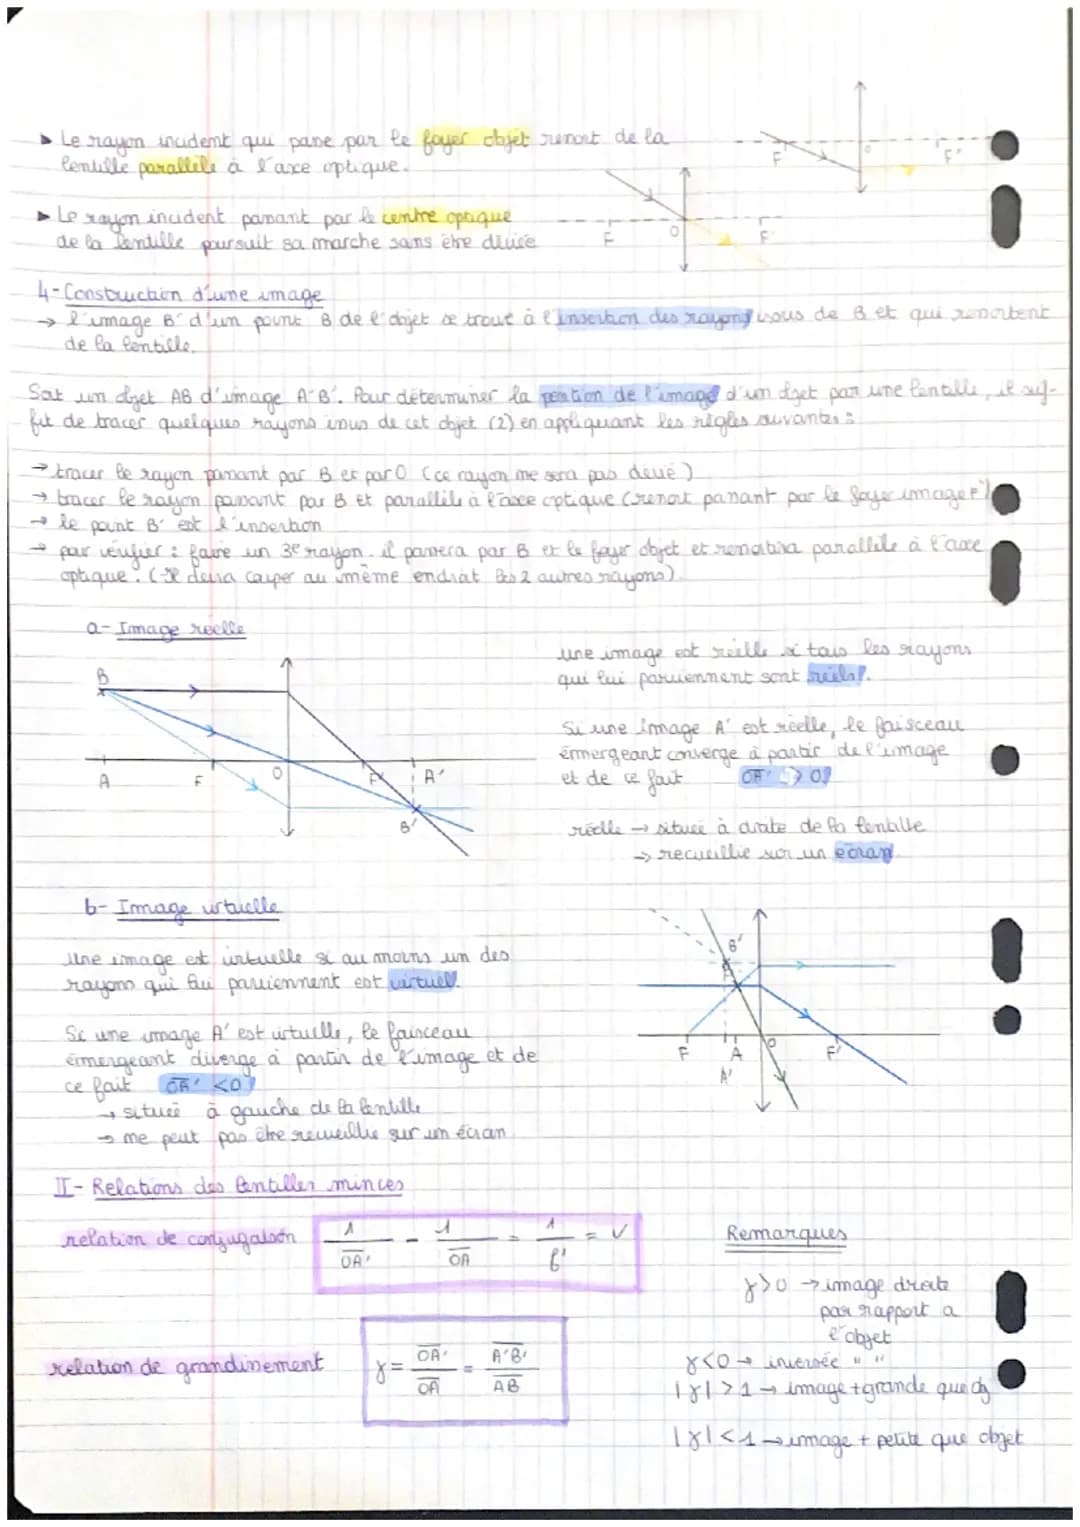 ► Le rayon incident qui passe par le foyer objet ressort de la
lentille parallèle à l'axe optique.
F O F'
► Le rayon incident passant par le centre optique
de la lentille poursuit sa marche sans être dévié
F O F'
4- Construction d'une image
→ l'image B' d'un point B de l'objet se trouve à l'insertion des rayons issus de B et qui ressortent
de la lentille.
Soit un objet AB d'image A'B'. Pour déterminer la position de l'image d'un objet par une lentille, il suf-
fit de tracer quelques rayons issus de cet objet (2) en appliquant les règles suivantes :
→ tracer le rayon passant par B et par O (ce rayon ne sera pas dévié)
→ tracer le rayon passant par B et parallèle à l'axe optique (ressort passant par le foyer image F')
→ le point B' est l'insertion
→ pour vérifier : faire un 3e rayon. il passera par B et le foyer objet et ressortira parallèle à l'axe
optique. (Il devra couper au même endroit les 2 autres rayons)
a- Image réelle
B
A F O F' A'
B'
une image est réelle si tous les rayons
qui lui parviennent sont réels.
Si une image A' est réelle, le faisceau
émergeant converge à partir de l'image
et de ce fait OA' > 0
réelle → située à droite de la lentille
→ recueillie sur un écran
b- Image virtuelle
Une image est virtuelle si au moins un des
rayons qui lui parviennent est virtuel.
Si une image A' est virtuelle, le faisceau
émergeant diverge à partir de l'image et de
ce fait OA' < 0
→ située à gauche de la lentille
→ ne peut pas être recueillie sur un écran
B'
F A O F'
A'
II- Relations des lentilles minces
relation de conjugaison 1/OA' - 1/OA = 1/f' = V
relation de grandissement γ = OA'/OA = A'B'/AB
Remarques
γ>0 → image droite
par rapport a
l'objet
γ<0 → inversée " "
|γ| > 1 → image + grande que obj
|γ| < 1 → image + petite que objet